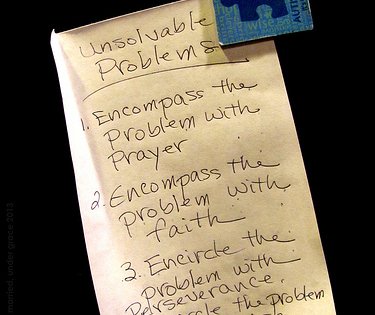 Unsolvable
Problems
1. Encompass the
Problem with
Prayer
2. Encompass the
Problem with
faith
3. Encircle the
problem with
Perseverance.
the Problem
married, under grace 2013